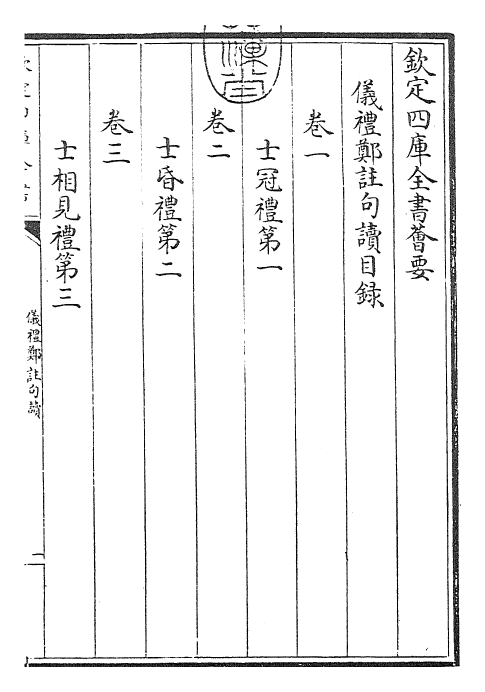 欽定四庫全書薈要
儀禮鄭註句讀目録
卷一
士冠禮第一
卷二
士昏禮第二
卷三
士相見禮第三
儀禮鄭註句讀